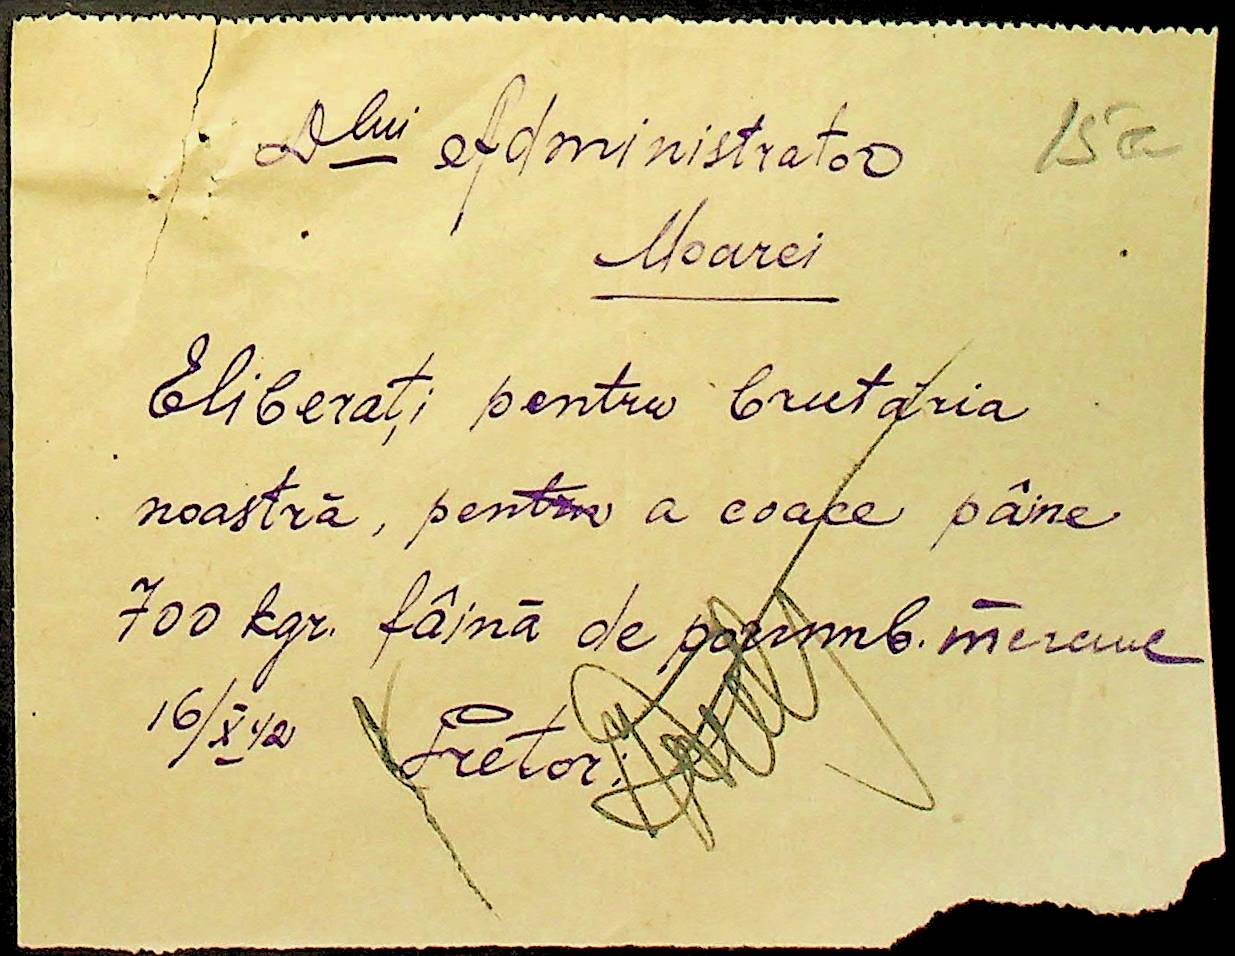 Dlui Administrator
15a
Moarei
Eliberați pentru brutăria
noastră, pentru a coace pâine
700 kgr. făină de porumb.
16/X 42 Pretor: